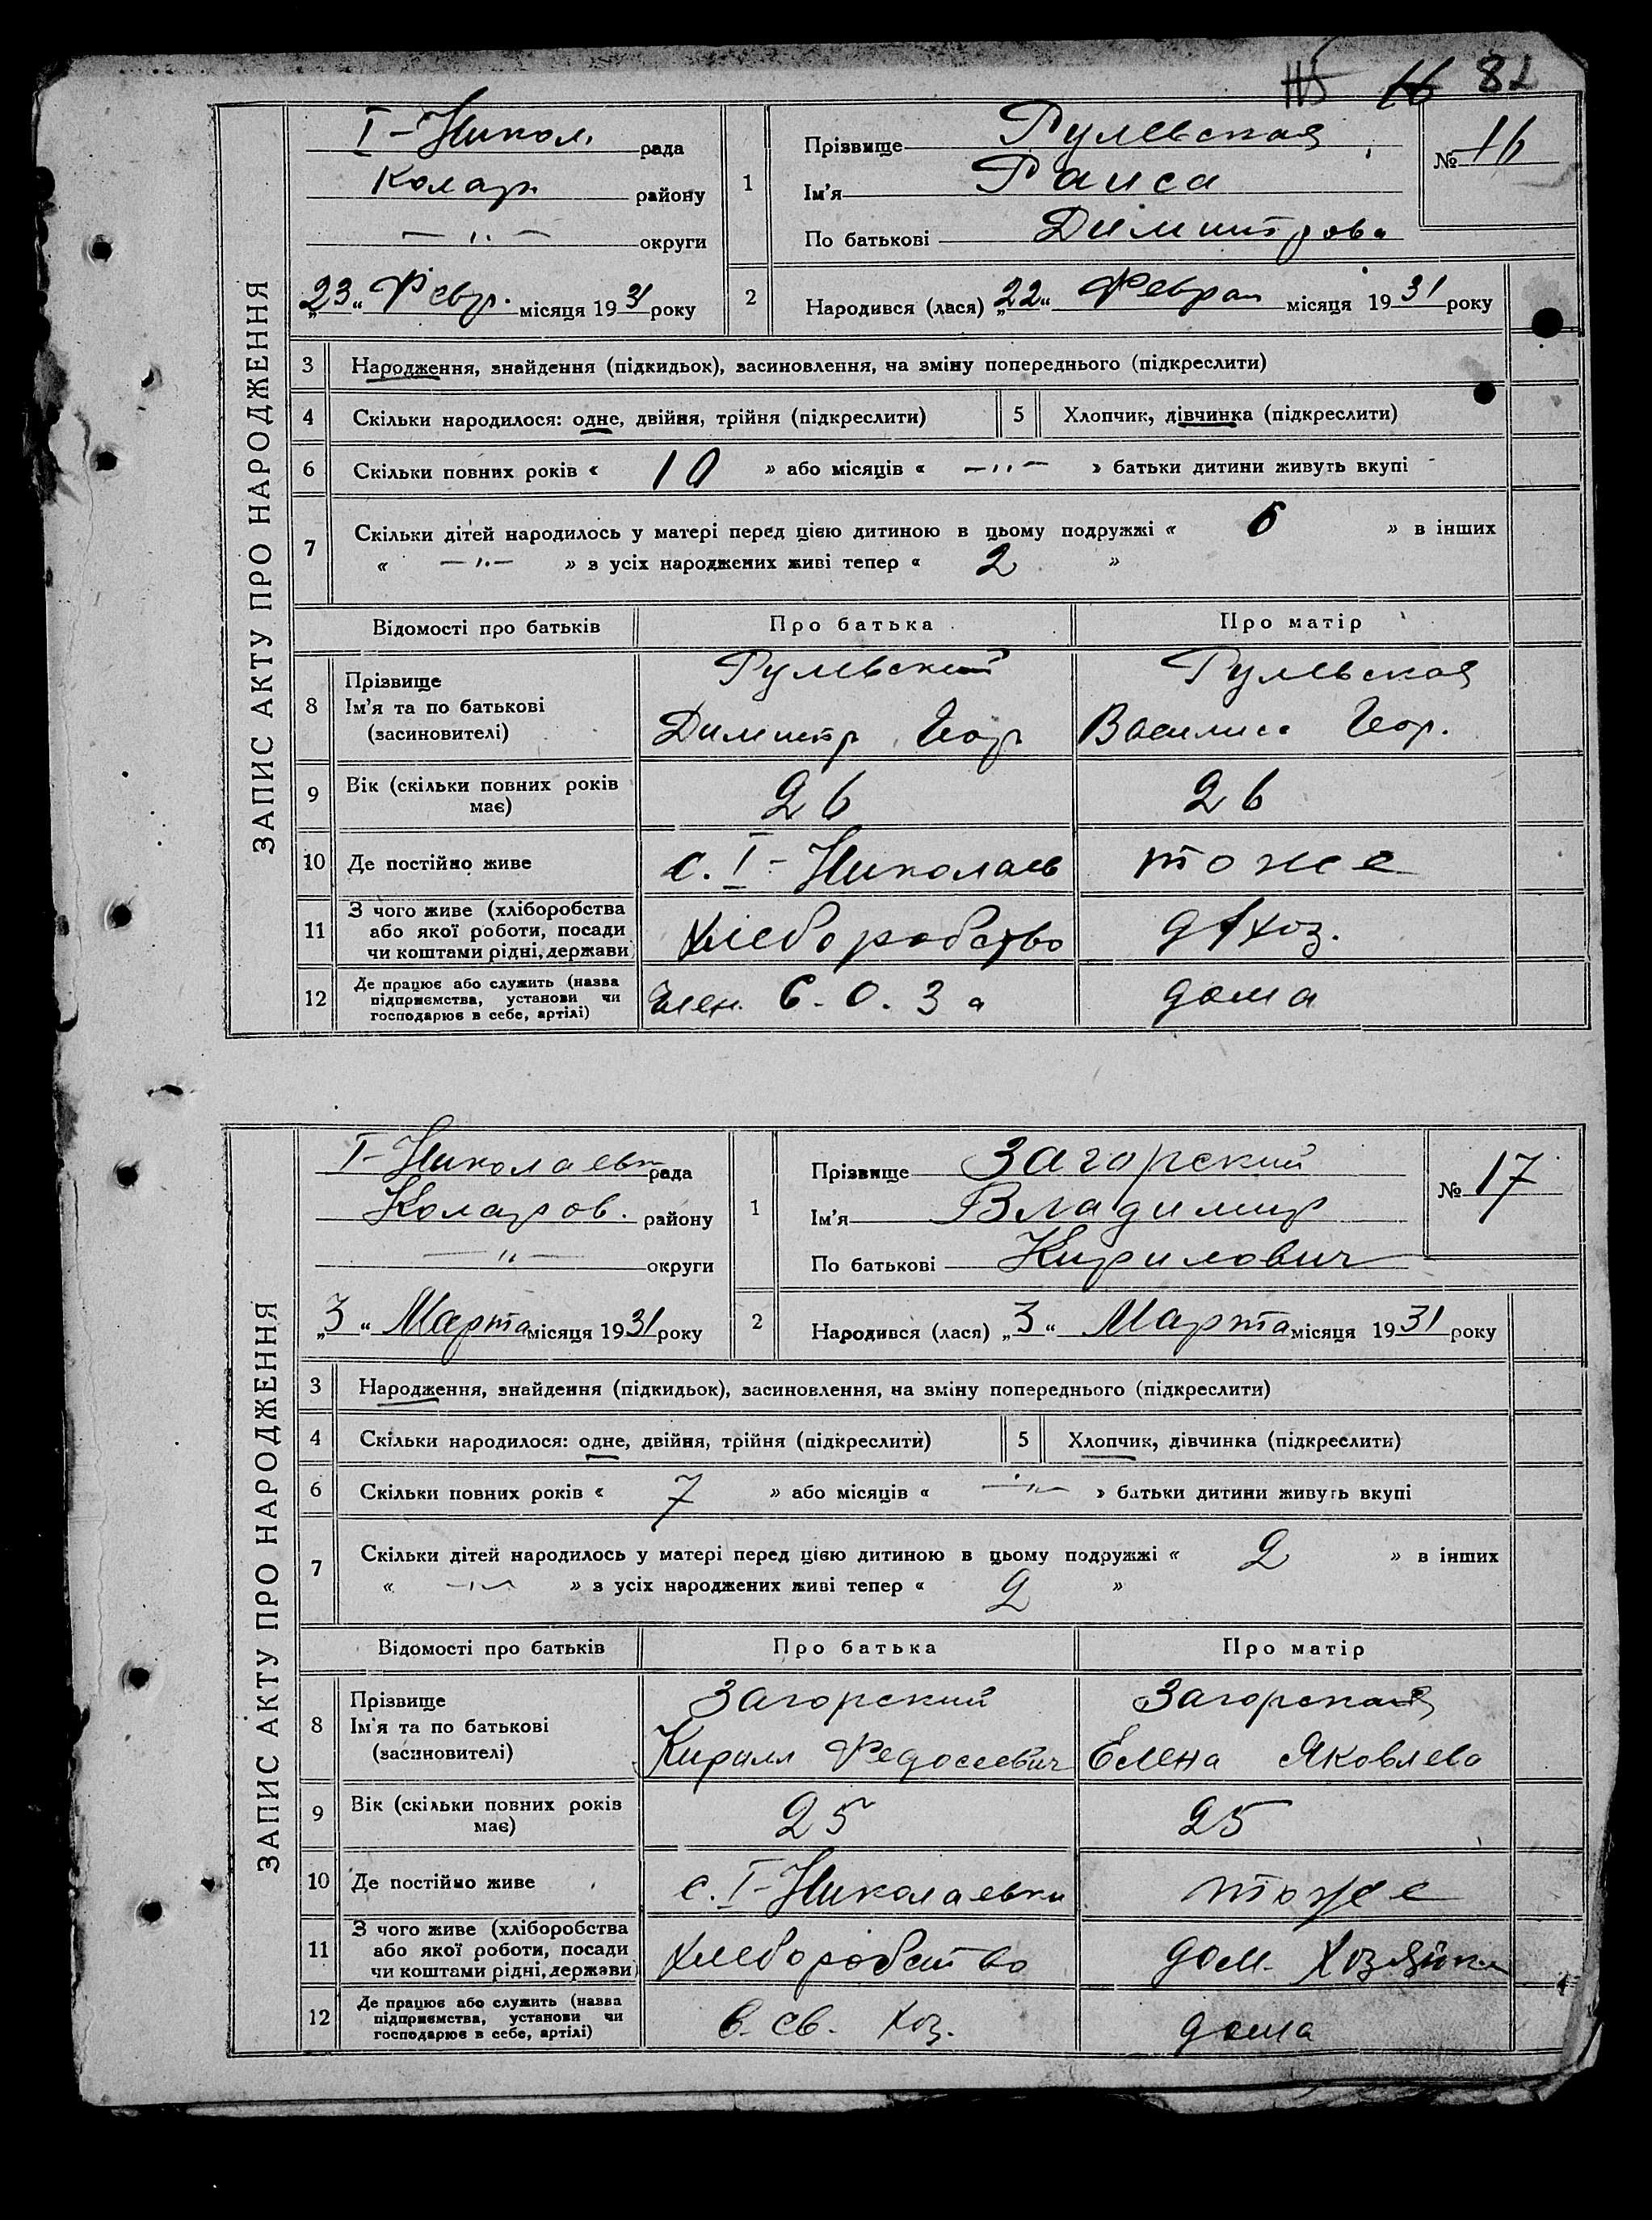 115 16 82
ЗАПИС АКТУ ПРО НАРОДЖЕННЯ
I-Никол. рада
Колар. району
— " — округи
„23“ Февр. місяця 1931 року
1
Прізвище Рулевская
Ім'я Раиса
По батькові Димитрова
№ 16
2
Народився (лася) „22“ Феврал місяця 1931 року
3 Народження, знайдення (підкидьок), засиновлення, на зміну попереднього (підкреслити)
4 Скільки народилося: одне, двійня, трійня (підкреслити) 5 Хлопчик, дівчинка (підкреслити)
6 Скільки повних років « 10 » або місяців « — " — » батьки дитини живуть вкупі
7 Скільки дітей народилось у матері перед цією дитиною в цьому подружжі « 6 » в інших
« — " — » з усіх народжених живі тепер « 2 »
Відомості про батьків Про батька Про матір
8 Прізвище Рулевский Рулевская
Ім'я та по батькові
(засиновителі) Димитр Геор Василиса Геор.
9 Вік (скільки повних років має) 26 26
10 Де постійно живе с. I-Николаев тоже
11 З чого живе (хліборобства
або якої роботи, посади
чи коштами рідні, держави) хлеборобство д/хоз.
12 Де працює або служить (назва
підприємства, установи чи
господарює в себе, артілі) Член. С.О.За дома
ЗАПИС АКТУ ПРО НАРОДЖЕННЯ
I-Николаевк рада
Коларов. району
— " — округи
„3“ Марта місяця 1931 року
1
Прізвище Загорский
Ім'я Владимир
По батькові Кирилович
№ 17
2
Народився (лася) „3“ Марта місяця 1931 року
3 Народження, знайдення (підкидьок), засиновлення, на зміну попереднього (підкреслити)
4 Скільки народилося: одне, двійня, трійня (підкреслити) 5 Хлопчик, дівчинка (підкреслити)
6 Скільки повних років « 7 » або місяців « — " — » батьки дитини живуть вкупі
7 Скільки дітей народилось у матері перед цією дитиною в цьому подружжі « 2 » в інших
« — " — » з усіх народжених живі тепер « 2 »
Відомості про батьків Про батька Про матір
8 Прізвище Загорский Загорская
Ім'я та по батькові
(засиновителі) Кирилл Федосеевич Елена Яковлева
9 Вік (скільки повних років має) 25 25
10 Де постійно живе с. I-Николаевки тоже
11 З чого живе (хліборобства
або якої роботи, посади
чи коштами рідні, держави) хлеборобство дом. хозяйка
12 Де працює або служить (назва
підприємства, установи чи
господарює в себе, артілі) в. св. хоз. дома